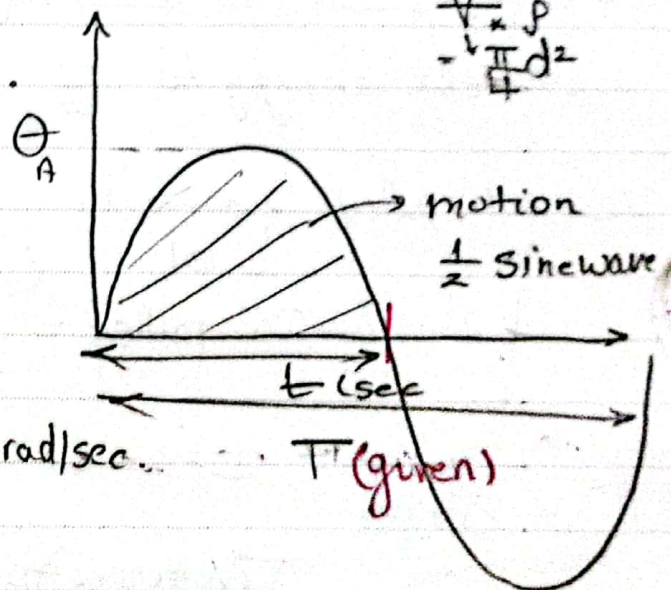 ∀ * ρ
- π/4 d²
θ_A
motion
1/2 Sinewave
t (sec
rad/sec.
T (given)